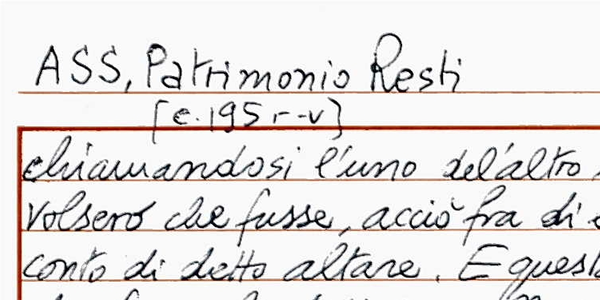 ASS, Patrimonio Resti
[c. 195 r-v]
chiamandosi l'uno del'altro
volsero che fusse, acciò fra di
conto di detto altare. E quest